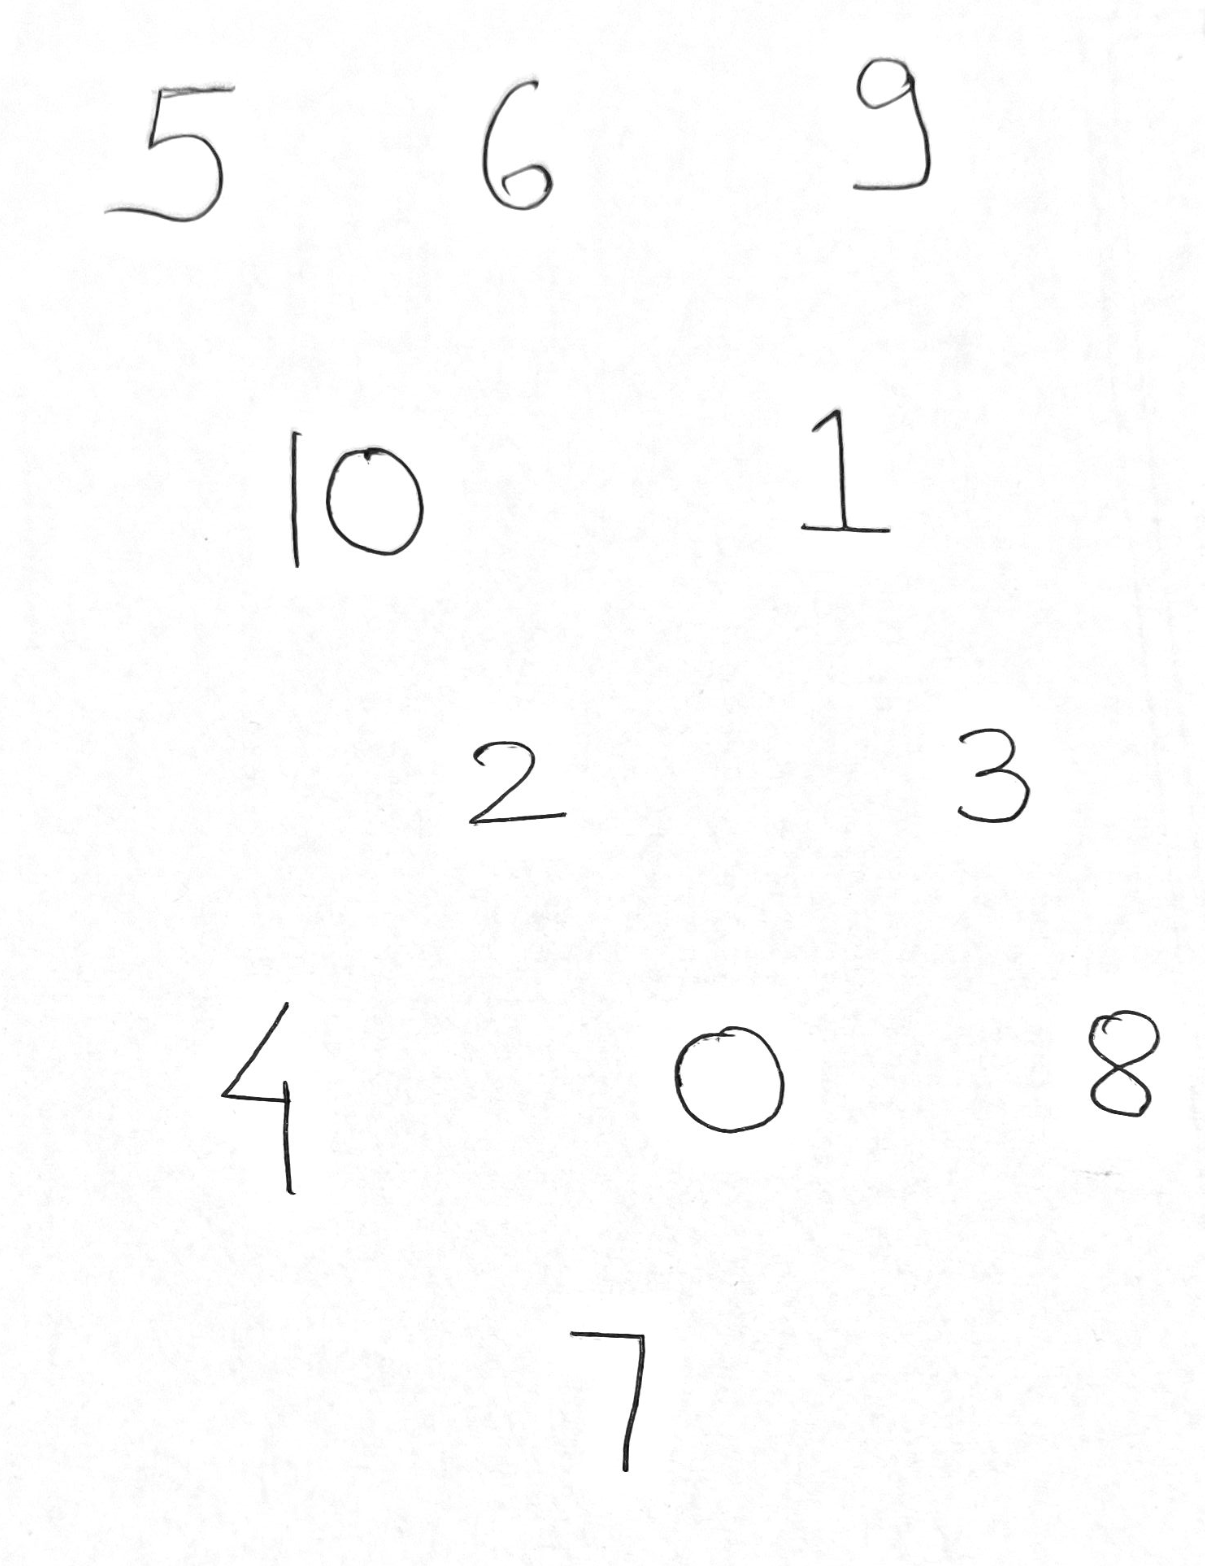 5 6 9
10 1
2 3
4 0 8
7